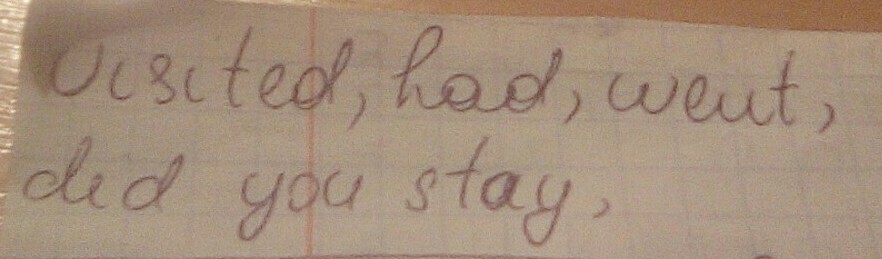 Visited, had, went,
did you stay,